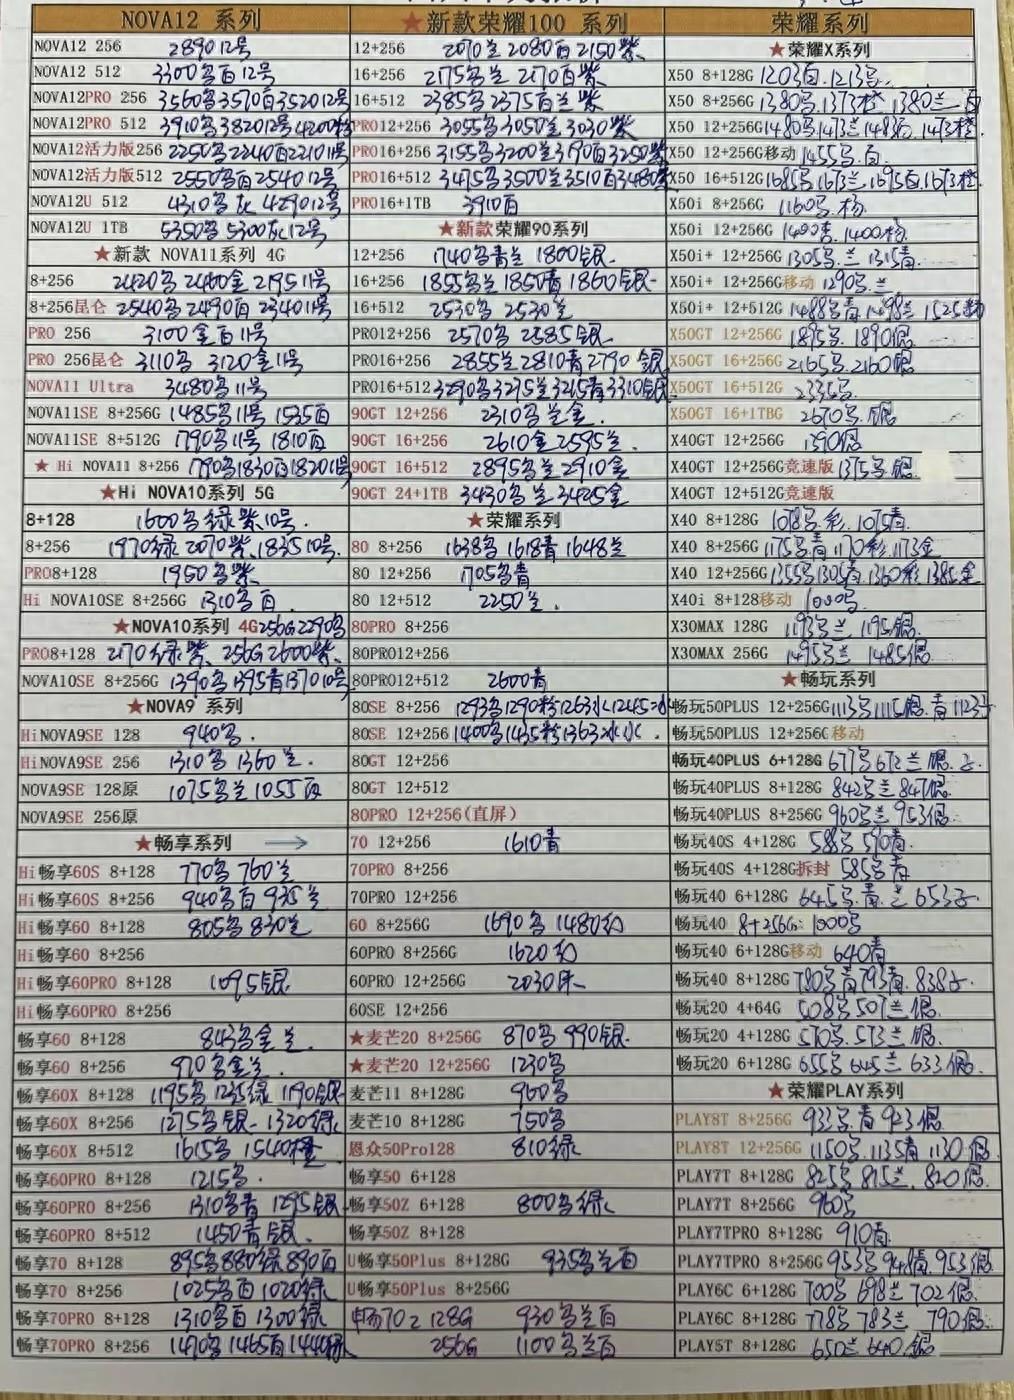 NOVA12 系列
NOVA12 256 2890 12号
NOVA12 512 3300鸟百 12号
NOVA12PRO 256 3560鸟3570百3520 12号
NOVA12PRO 512 3910鸟3820 12号4200
NOVA12活力版256 2250鸟2240百2210 11号
NOVA12活力版512 2550鸟百2540 12号
NOVA12U 512 4310鸟灰 4290 12号
NOVA12U 1TB 5350鸟 5300灰12号
★新款 NOVA11系列 4G
8+256 2420鸟 2400金 2195 11号
8+256昆仑 2540鸟 2490百 2340 11号
PRO 256 3100金百11号
PRO 256昆仑 3110鸟 3120金11号
NOVA11 Ultra 3480鸟11号
NOVA11SE 8+256G 1485鸟11号 1535百
NOVA11SE 8+512G 1790鸟11号 1810百
★ Hi NOVA11 8+256 1790鸟1830百1820 11号
★Hi NOVA10系列 5G
8+128 1600鸟绿紫10号.
8+256 1970绿 2070紫.1835 10号.
PRO8+128 1950鸟紫
Hi NOVA10SE 8+256G 1310鸟百.
★NOVA10系列 4G 256G 2290鸟
PRO8+128 2170绿紫、256G 2600紫.
NOVA10SE 8+256G 1390鸟1395青1370 10号
★NOVA9 系列
HiNOVA9SE 128 940鸟.
HiNOVA9SE 256 1310鸟 1360兰.
NOVA9SE 128原 1075鸟兰1055百
NOVA9SE 256原
★畅享系列 →
Hi畅享60S 8+128 770鸟 760兰
Hi畅享60S 8+256 940鸟百 935兰
Hi畅享60 8+128 805鸟 830兰
Hi畅享60 8+256
Hi畅享60PRO 8+128 1095银
Hi畅享60PRO 8+256
畅享60 8+128 843鸟金兰.
畅享60 8+256 970鸟金兰.
畅享60X 8+128 1195鸟 1235绿 1190银
畅享60X 8+256 1275鸟银 1320绿
畅享60X 8+512 1615鸟 1540橙
畅享60PRO 8+128 1215鸟.
畅享60PRO 8+256 1310鸟青 1295银
畅享60PRO 8+512 1450青银.
畅享70 8+128 895鸟880绿890百
畅享70 8+256 1025鸟百1020绿
畅享70PRO 8+128 1310鸟百1300绿
畅享70PRO 8+256 1470鸟1465百1440绿
★新款荣耀100 系列
12+256 2070兰2080百2150紫
16+256 2175鸟兰 2170百紫
16+512 2385鸟2375百兰紫
PRO12+256 3055鸟3050兰3030紫
PRO16+256 3155鸟3200兰3190百3250紫
PRO16+512 3475鸟3500兰3510百3480紫
PRO16+1TB 3910百
★新款荣耀90系列
12+256 1740鸟青兰 1800银.
16+256 1855鸟兰1850青1860银
16+512 2530鸟 2530兰
PRO12+256 2570鸟 2585银
PRO16+256 2855兰2810青2790银
PRO16+512 3290鸟3275兰3215青3310银
90GT 12+256 2310鸟兰金.
90GT 16+256 2610金2595兰.
90GT 16+512 2895鸟兰2910金
90GT 24+1TB 3430鸟兰3425金
★荣耀系列
80 8+256 1638鸟1618青1648兰
80 12+256 1705鸟青
80 12+512 2250兰.
80PRO 8+256
80PRO12+256
80PRO12+512 2600青
80SE 8+256 1293鸟1290粉1263冰1245冰
80SE 12+256 1400鸟1435粉1363冰
80GT 12+256
80GT 12+512
80PRO 12+256(直屏)
70 12+256 1610青
70PRO 8+256
70PRO 12+256
60 8+256G 1690鸟 1480幻
60PRO 8+256G 1620幻
60PRO 12+256G 2030
60SE 12+256
★麦芒20 8+256G 870鸟 990银.
★麦芒20 12+256G 1230鸟
麦芒11 8+128G 960鸟
麦芒10 8+128G 750鸟
恩众50Pro128 810绿
畅享50 6+128
畅享50Z 6+128 800鸟绿
畅享50Z 8+128
U畅享50Plus 8+128G 935鸟兰百
U畅享50Plus 8+256G
畅70z 128G 930鸟兰百
256G 1100鸟兰百
荣耀系列
★荣耀X系列
X50 8+128G 1203百.1213鸟.
X50 8+256G 1380鸟.1373橙.1380兰.百
X50 12+256G 1480鸟1473兰1483百.1473橙.
X50 12+256G移动 1455鸟.百.
X50 16+512G 1685鸟1673兰1695百1673橙
X50i 8+256G 1160鸟.
X50i 12+256G 1400青.1400
X50i+ 12+256G 1305鸟.兰1315青.
X50i+ 12+256G移动 1290鸟.兰
X50i+ 12+512G 1488鸟青1498兰1525粉
X50GT 12+256G 1895鸟.1890银.
X50GT 16+256G 2165鸟.2160银
X50GT 16+512G 2335鸟.
X50GT 16+1TBG 2670鸟.银
X40GT 12+256G 1390银.
X40GT 12+256G竞速版 1375鸟.银.
X40GT 12+512G竞速版
X40 8+128G 1078鸟.彩.1075青.
X40 8+256G 1175鸟青1170彩.1173金
X40 12+256G 1355鸟1305青1360彩1385金
X40i 8+128移动 1000鸟.
X30MAX 128G 1193鸟兰 1195银.
X30MAX 256G 1495鸟兰 1485银
★畅玩系列
畅玩50PLUS 12+256G 1113鸟1115银.青1123
畅玩50PLUS 12+256G移动
畅玩40PLUS 6+128G 677鸟672兰银.
畅玩40PLUS 8+128G 842鸟兰847银
畅玩40PLUS 8+256G 960鸟兰953银.
畅玩40S 4+128G 588鸟590青.
畅玩40S 4+128G拆封 585鸟青
畅玩40 6+128G 645鸟.青.兰653
畅玩40 8+256G: 1000鸟
畅玩40 6+128G移动 640青
畅玩40 8+128G 780鸟青793青.838
畅玩20 4+64G 508鸟507兰银.
畅玩20 4+128G 570鸟.573兰银.
畅玩20 6+128G 655鸟645兰633银.
★荣耀PLAY系列
PLAY8T 8+256G 933鸟.青923银
PLAY8T 12+256G 1150鸟.1135青1130银.
PLAY7T 8+128G 825鸟815兰.820银.
PLAY7T 8+256G 960鸟
PLAY7TPRO 8+128G 910青
PLAY7TPRO 8+256G 953鸟948青.953银
PLAY6C 6+128G 700鸟 698兰702银.
PLAY6C 8+128G 778鸟 783兰 790银.
PLAY5T 8+128G 650兰640银